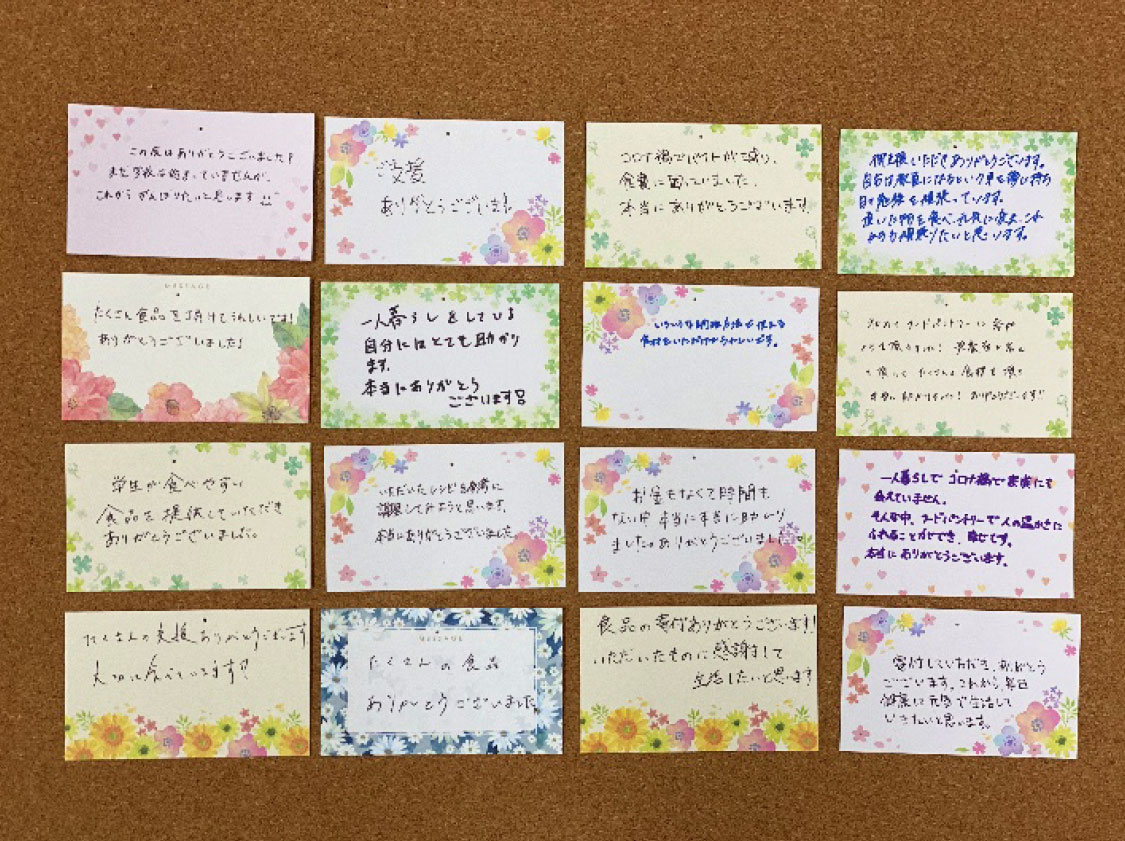 この度はありがとうございました!
まだ学校は始まっていませんが、
これからがんばりたいと思います
ご支援
ありがとうございます!
コロナ禍でバイトが減り、
食費に困っていました。
本当にありがとうございます。
いただきありがとうございます。
自分は教員になるという夢を
日々勉強を頑張っています。
頂いた物を食べ、元気に
頑張りたいと思います。
MESSAGE
たくさん食品を頂けてうれしいです!
ありがとうございました!
一人暮らしをしている
自分にはとても助かり
ます。
本当にありがとう
ございます
いろいろな調理方法で使える
食材をいただけてうれしいです。
フードパントリーに
たくさん
ありがとうございます!!
学生が食べやすい
食品を提供していただき
ありがとうございました。
いただいたレシピを参考に
調理してみようと思います。
本当にありがとうございました
お金もなくて時間も
ない中 本当に本当に助かり
ました。ありがとうございました。
一人暮らしで コロナ禍で家族にも
会えていません。
そんな中、フードパントリーで人の温かさに
ふれることができ、幸せです。
本当にありがとうございます。
たくさんの支援ありがとうございます
大切に食べていきます!!
MESSAGE
たくさんの食品
ありがとうございました。
食品の寄付ありがとうございます!
いただいたものに感謝して
生活したいと思います
寄付していただき、ありがとう
ございます。これから、毎日
健康に元気で生活して
いきたいと思います。